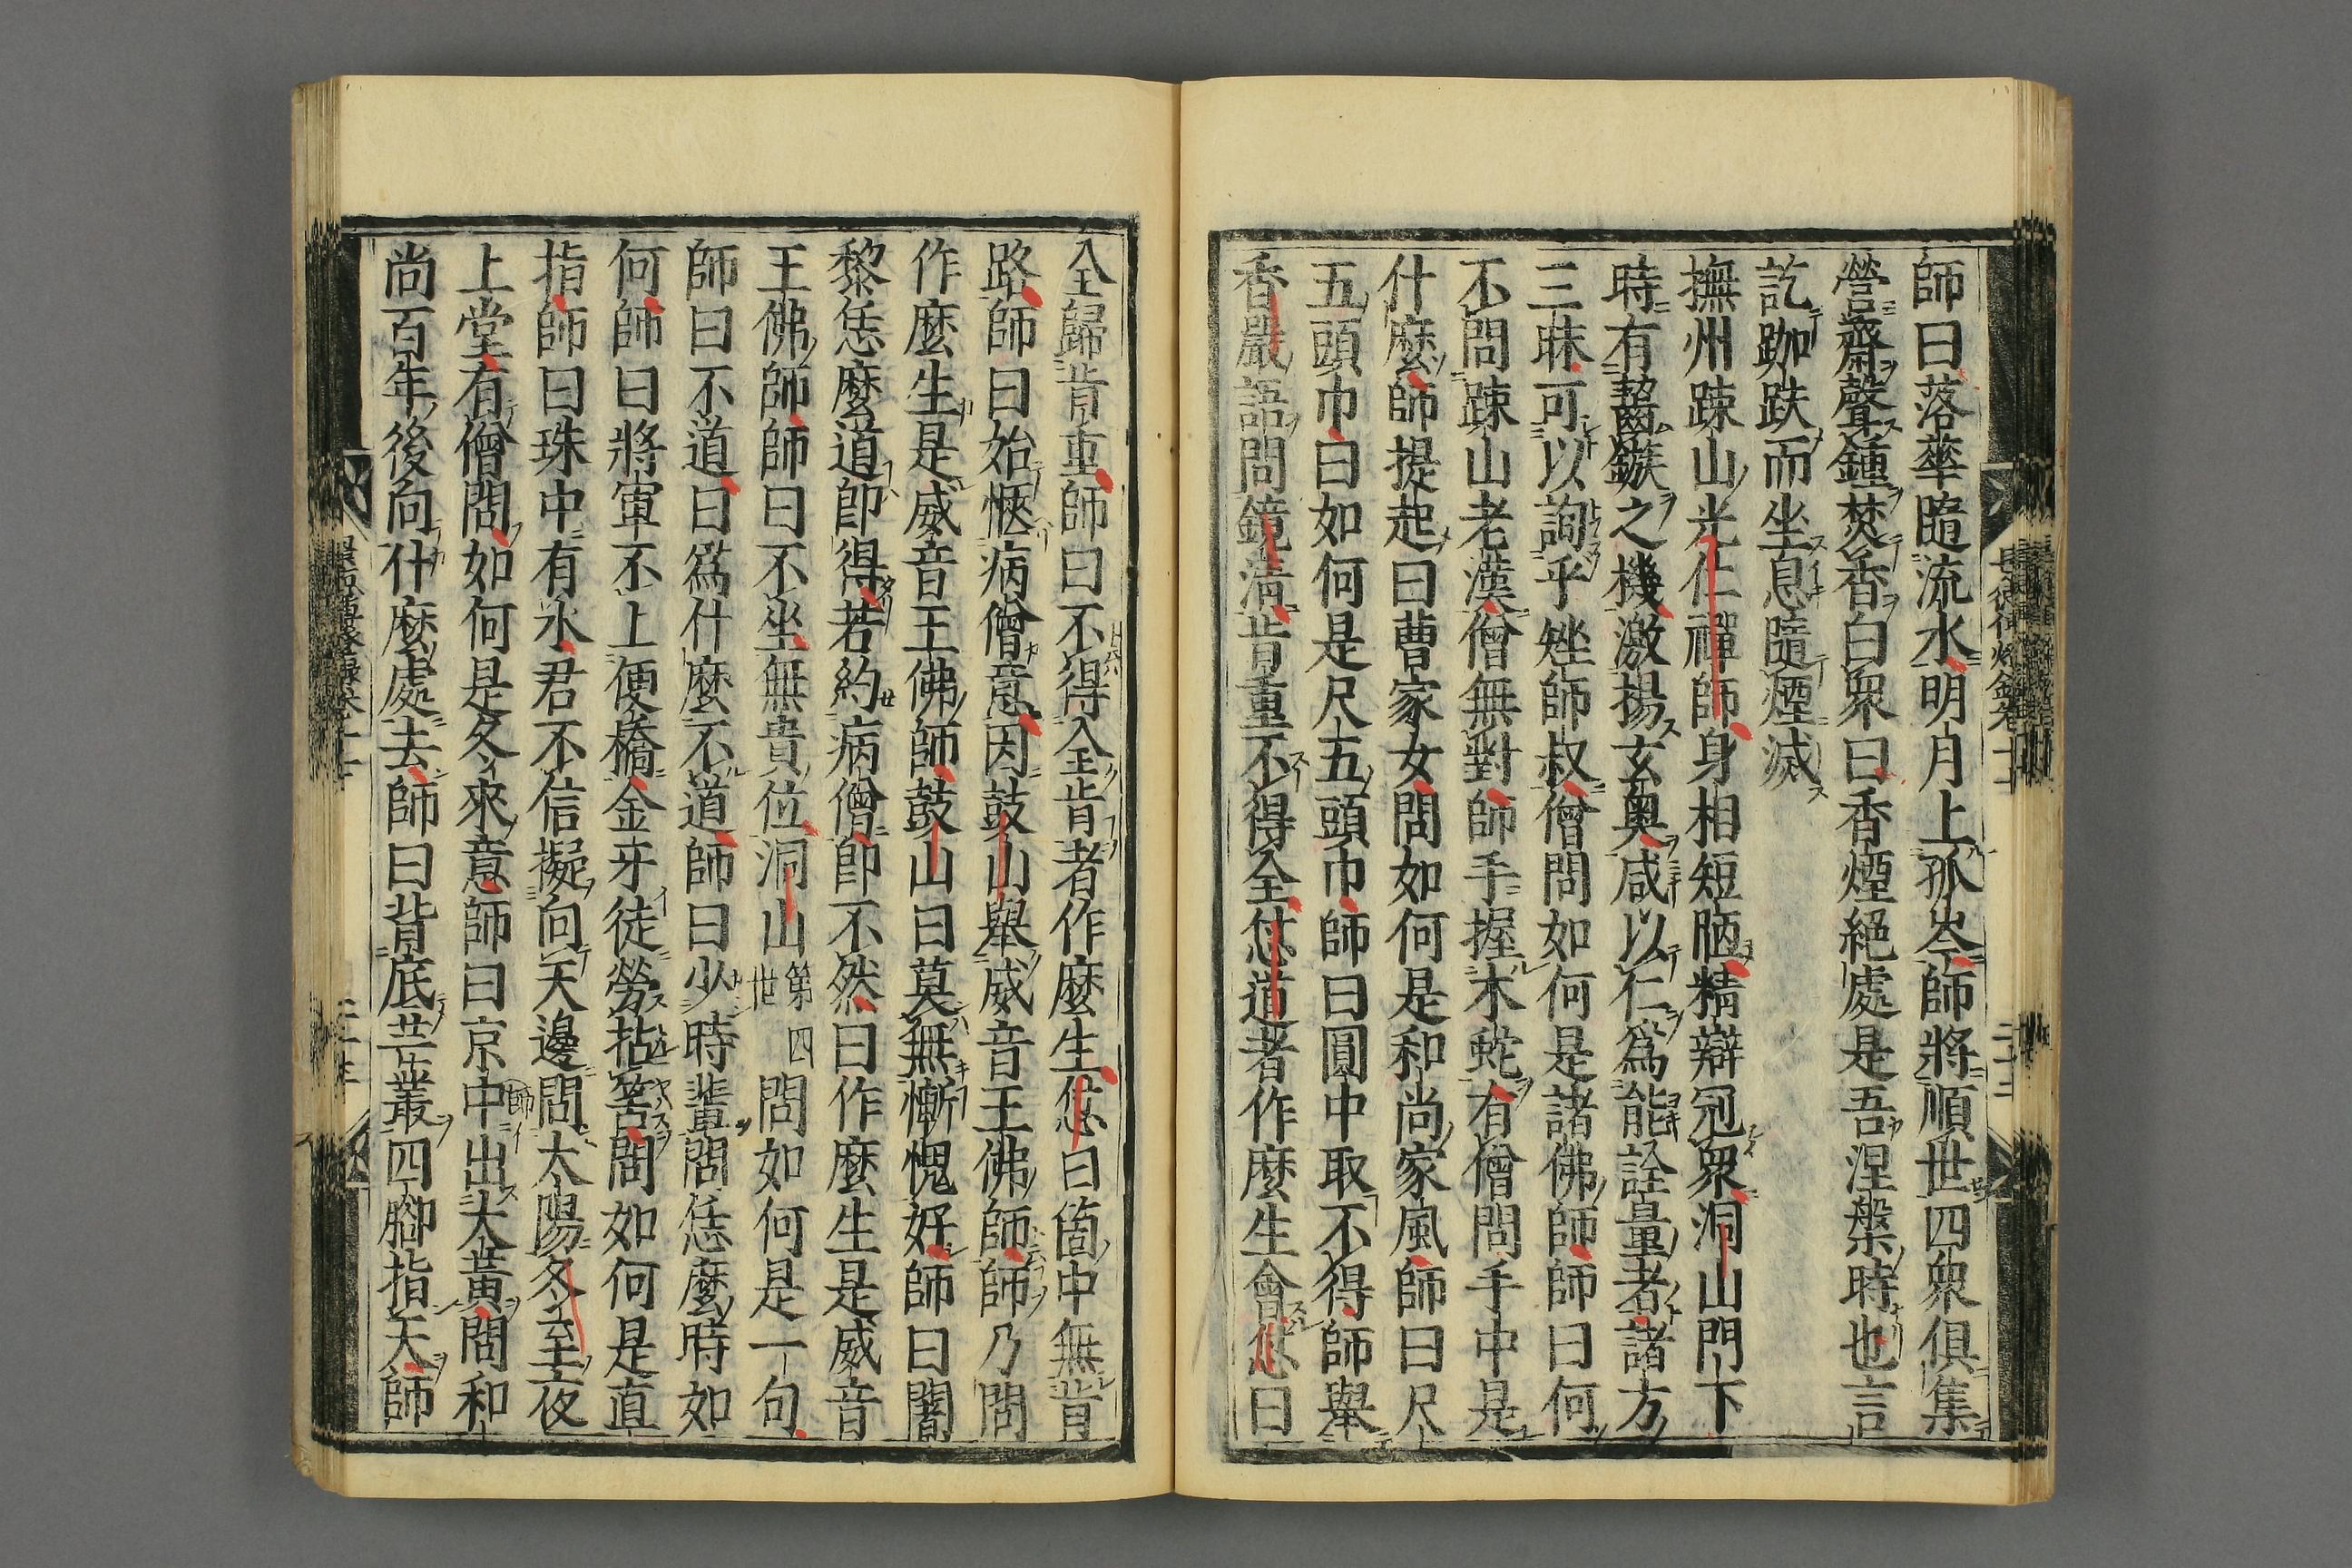 師曰落華隨流水明月上孤岑師將順世四衆俱集
營齋聲鍾焚香白衆曰香煙絕處是吾涅槃時也言
訖跏趺而坐息隨煙滅
撫州踈山光仁禪師身相短陋精辯冠衆洞山門下
時有齧鏃之機激揚玄奥咸以仁爲能詮量者諸方
三昧可以詢乎矬師叔僧問如何是諸佛師師曰何
不問踈山老漢僧無對師手握木蛇有僧問手中是
什麼師提起曰曹家女問如何是和尚家風師曰尺
五頭巾曰如何是尺五頭巾師曰圓中取不得師舉
香嚴語問鏡清肯重不得全怤道者作麼生會怤曰
全歸肯重師曰不得全肯者作麼生怤曰箇中無肯
路師曰始愜病僧意因鼓山舉威音王佛師師乃問
作麼生是威音王佛師鼓山曰莫無慚愧好師曰闍
黎恁麼道即得若約病僧即不然曰作麼生是威音
王佛師師曰不坐無貴位洞山第四世問如何是一句
師曰不道曰爲什麼不道師曰少時輩問恁麼時如
何師曰將軍不上便橋金牙徒勞拈筈問如何是直
指師曰珠中有水君不信擬向天邊問太陽冬至夜
上堂有僧問如何是冬來意師曰京中出大黃問和
尚百年後向什麼處去師曰背底芒叢四腳指天師